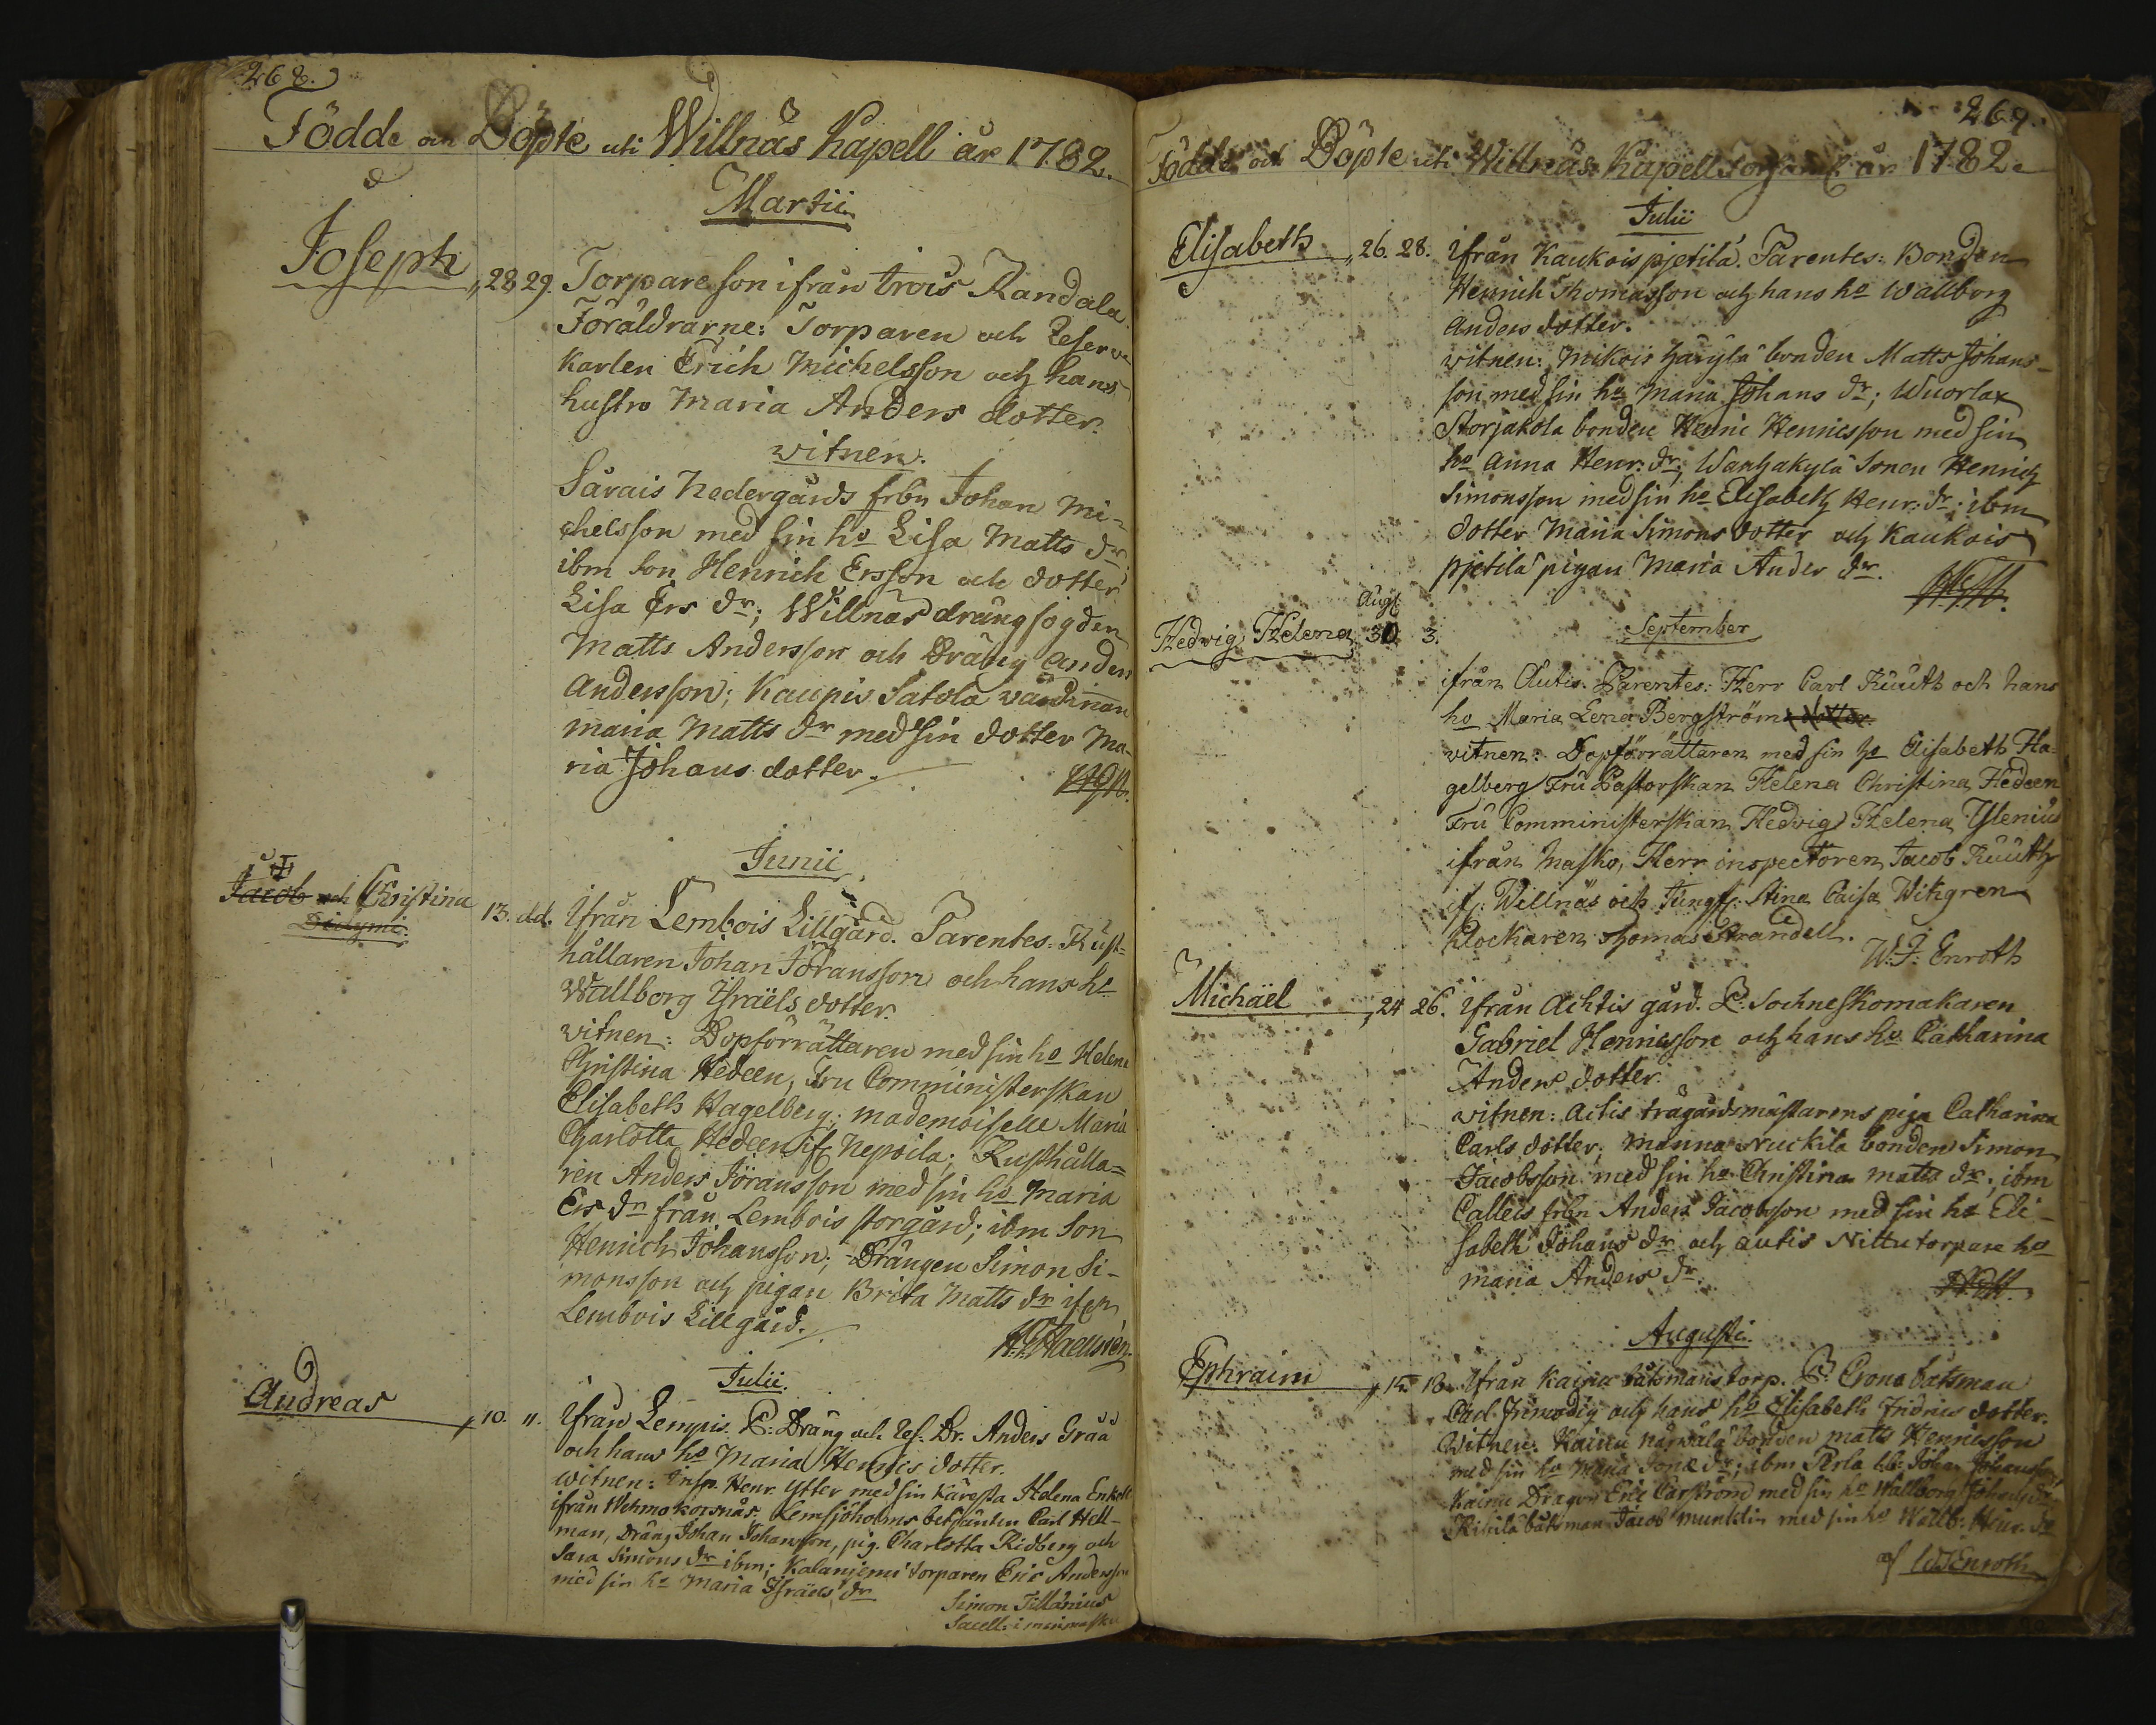 268.
Födde och Döpte uti Willnäs Kapell år 1782.
Martii
Joseph 28 29. Torpare son ifrån trois Randala
Föräldrarne: Torparen och Reserve
Karlen Erich Michelsson och hans
hustro Maria Anders dotter.
witnen.
Särais Nedergårds frbn Johan Mi-
chelsson med sin ho Lisa Matts dr
ibm son Henrich Ersson och dotter
Lisa Ers dr; Willnäs drängfogden
Matts Andersson och Dräng Anders
Andersson; Kaupis Satola värdinnan
Maria Matts dr med sin dotter Ma-
ria Johans dotter.
Junii
Jacob och Christina 13. dd. Ifrån Lembois Lillgård. Parentes: Rust-
Didymi.
hållaren Johan Jöransson och hans ho
Wallborg Israëls dotter.
witnen: Dopförrättaren med sin ho Helena
Christina Hedeen, Fru Comministerskan
Elisabeth Hagelberg; mademoiselle Maria
Charlotta Hedeen if: Nepoila; Rusthålla=
ren Anders Jöransson med sin ho Maria
Ers dr från Lembois storgård; ibm son
Henrich Johansson; Drängen Simon Si-
monsson och pigan Brita Matts dr ifrån
Lembois Lillgård.
Julii.
Andreas 10. 11. Ifrån Lempis. P: Dräng och Res: Dr. Anders Graa
och hans ho Maria Henrics dotter.
witnen: Insp. Henr. Ytter med sin Käresta Helena Enkell
ifrån Wehmo Korsnäs. Lemsjöholms betjänten Carl Hell-
man, Dräng Johan Johansson, pig. Charlotta Ridberg och
Sara Simons dr ibm; Kalaniemi torparen Eric Andersson
med sin ho Maria Israels dr
Simon Tillanius
Sacell: i
269.
Födde och Döpte uti Willnäs Kapell församl: år 1782.
Julii
Elisabeth 26. 28. Ifrån Kaukois pjetilä. Parentes: Bonden
Henrich Thomasson och hans ho Wallborg
Anders dotter.
witnen: Mikois häyla bonden Matts Johans-
son med sin ho Maria Johans dr; Wuorlax
Storjakola bonden Henric Henricsson med sin
ho Anna Henr. dr; Wanhakylä sonen Henrich
Simonsson med sin ho Elisabeth Henr: dr; ibm
dotter Maria Simons dotter och Kaukois
pjetilä pigan Maria Anders dr.
Aug:
Hedvig Helena 30 3. September
ifrån Autis. Parentes: Herr Carl Ruuth och hans
ho Maria Lena Bergström dotter.
witnen: Dopförrättaren med sin ho Elisabeth Ha-
gelberg Fru Pastorskan Helena Christina Hedeen
Fru Comministerskan Hedvig Helena Ylenius
ifrån Masko, Herr inspectoren Jacob Ruuth
if: Willnäs och Jungf: Stina Caisa Witzgren
Klockaren Thomas Strandell.
W: J: Enroth
Michäel 24 26. Ifrån Achtis gård. P. Sochneskomakaren
Gabriel Henricsson och hans ho Catharina
Anders dotter.
witnen: Actis trägårdsmästarens piga Catharina
Carls dotter, Manna Nuckila bonden Simon
Jacobsson med sin ho Christina Matts dr; ibm
Calleis frbn Anders Jacobsson med sin ho Eli-
sabeth Johans dr och autis Nittu torpare ho
Maria Anders dr.
Augusti.
Ephraim Ifrån Kainu båtsmans torp. P: Crono båtsman
Carl Frimodig och hans ho Elisabeth Fridrics dotter.
Witnen: Kainu Närvälä bonden Matts Henricsson
med sin ho Maria dr; ibm Perla Johan Johansson,
Kainu Dragon Eric Carström med sin ho Wallborg Johans dr
båtsman Jacob Muncklin med sin ho Wallb: Henr. dr
af WJEnroth